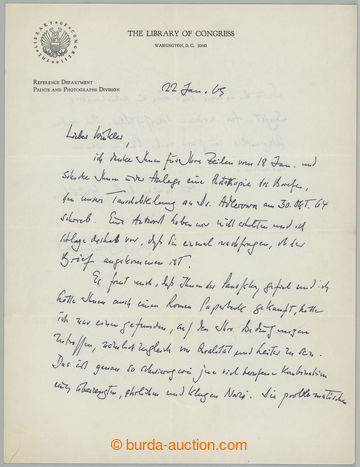 THE LIBRARY OF CONGRESS
THE LIBRARY OF CONGRESS
WASHINGTON, D. C. 20540
REFERENCE DEPARTMENT
PRINTS AND PHOTOGRAPHS DIVISION
22 Jan. 65
Lieber Winkler,
ich danke Ihnen für Ihre Zeilen vom 18 Jan. und
schicke Ihnen in der Anlage eine Photokopie des Briefes,
den unsere Tauschabteilung an Dr. am 30. Okt. 64
schrieb. Eine Antwort haben wir nicht erhalten und ich
schlage deshalb vor, daß Sie einmal nachfragen, ob der
Brief angekommen ist.
Es freut mich, daß Ihnen der Panofsky gefiel und ich
hätte Ihnen auch einen Roman Paperback gekauft, hätte
ich nur einen gefunden, auf den Ihre Bedingungen
zutreffen, nämlich zugleich von Qualität und heiter zu sein.
Das ist genau so schwierig wie jene viel berufene Kombination
eines überzeugten, ehrlichen und klugen Nazi. Die problematischen
© burda-auction.com